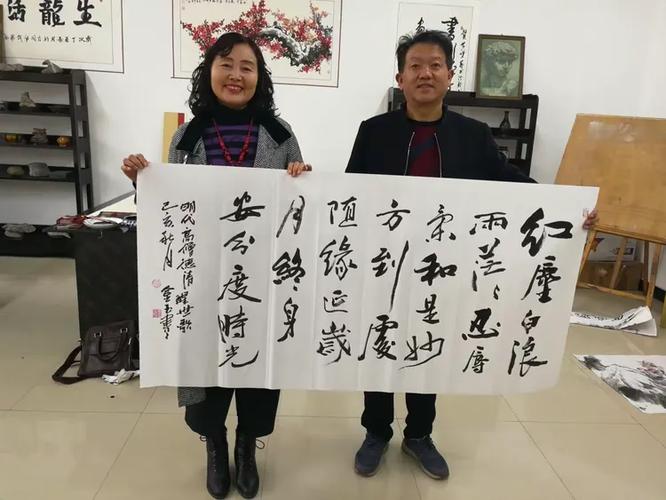 红塵白浪
两茫々忍辱
柔和是妙
方到處
随緣延歲
月終身
安分度時光
明代高僧德清醒世歌
己亥秋月
生龍活